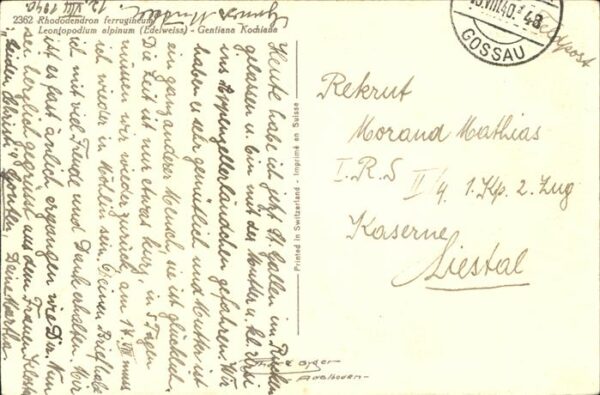 2362 Rhododendron ferrugineum
Leontopodium alpinum (Edelweiss) - Gentiana Kochiana
12. VIII 1940
Heute habe ich jetzt St. Gallen im Rücken
gelassen u. bin mit der Mutter u. kl. Rösi
ins Appenzellerländchen gefahren. Wir
haben es sehr gemütlich und Mutter ist
ein ganz anderer Mensch, sie ist glücklich.
Die Zeit ist nur etwas kurz, in 5 Tagen
müssen wir wieder zurück, am 17. VIII muss
ich wieder in sein. Deinen Brief habe
ich mit viel Freude und Dank erhalten. Mir
ist es fast änlich ergangen wie Dir. Nun
sei herzlich gegrüsst aus dem Frauenkloster
Deine Martha.
Printed in Switzerland - Imprimé en Suisse
VIII.40. 48
GOSSAU
Feldpost
Rekrut
Morand Mathias
I.R.S II/4 1.Kp. 2. Zug
Kaserne
Liestal